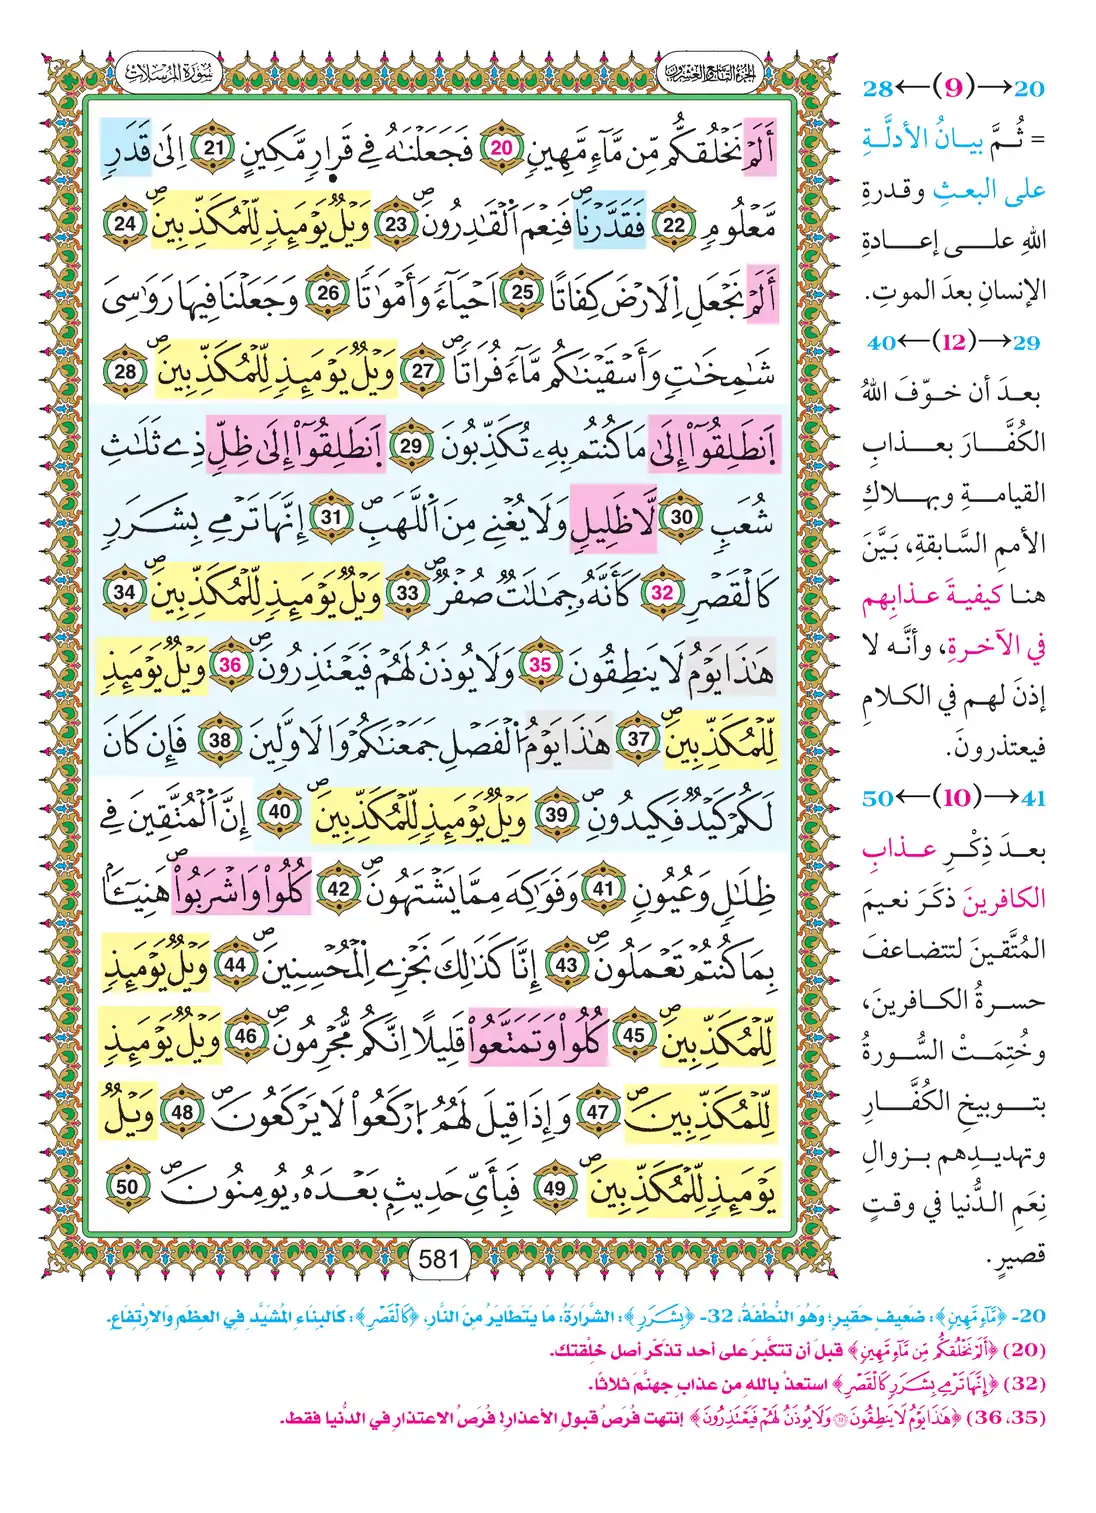 سُورَةُ المُرْسَلَات
الجزء التاسع والعشرون
أَلَمْ نَخْلُقكُّم مِّن مَّآءٖ مَّهِينٖ 20 فَجَعَلْنَٰهُ فِے قَرارٖ مَّكِينٍ 21 اِلَىٰ قَدَرٖ
مَّعْلُومٖ 22 فَقَدَّرْنَاۖ فَنِعْمَ اَ۬لْقَٰدِرُونَۖ 23 وَيْلٞ يَوْمَئِذٖ لِّلْمُكَذِّبِينَۖ 24
أَلَمْ نَجْعَلِ اِ۬لَارْضَ كِفَاتًا 25 اَحْيَآءٗ وَأَمْوَٰتٗا 26 وَجَعَلْنَا فِيهَا رَوَٰسِىَ
شَٰمِخَٰتٖ وَأَسْقَيْنَٰكُم مَّآءٗ فُرَاتٗاۖ 27 وَيْلٞ يَوْمَئِذٖ لِّلْمُكَذِّبِينَۖ 28
اَ۪نطَلِقُوٓاْ إِلَىٰ مَا كُنتُم بِهِۦ تُكَذِّبُونَ 29 اَ۪نطَلِقُوٓاْ إِلَىٰ ظِلّٖ ذِے ثَلَٰثِ
شُعَبٖ 30 لَّا ظَلِيلٖ وَلَا يُغْنِے مِنَ اَ۬للَّهَبِۖ 31 إِنَّهَا تَرْمِے بِشَرَرٖ
كَالْقَصْرِ 32 كَأَنَّهُۥ جِمَٰلَٰتٞ صُفْرٞۖ 33 وَيْلٞ يَوْمَئِذٖ لِّلْمُكَذِّبِينَۖ 34
هَٰذَا يَوْمُ لَا يَنطِقُونَ 35 وَلَا يُوذَنُ لَهُمْ فَيَعْتَذِرُونَۖ 36 وَيْلٞ يَوْمَئِذٖ
لِّلْمُكَذِّبِينَۖ 37 هَٰذَا يَوْمُ اُ۬لْفَصْلِ جَمَعْنَٰكُمْ وَالَاوَّلِينَ 38 فَإِن كَانَ
لَكُمْ كَيْدٞ فَكِيدُونِۖ 39 وَيْلٞ يَوْمَئِذٖ لِّلْمُكَذِّبِينَۖ 40 إِنَّ اَ۬لْمُتَّقِينَ فِے
ظِلَٰلٖ وَعُيُونٖ 41 وَفَوَٰكِهَ مِمَّا يَشْتَهُونَۖ 42 كُلُواْ وَاشْرَبُواْ هَنِيٓـَٔاۢ
بِمَا كُنتُمْ تَعْمَلُونَۖ 43 إِنَّا كَذَٰلِكَ نَجْزِے اِ۬لْمُحْسِنِينَۖ 44 وَيْلٞ يَوْمَئِذٖ
لِّلْمُكَذِّبِينَۖ 45 كُلُواْ وَتَمَتَّعُواْ قَلِيلًا اِنَّكُم مُّجْرِمُونَۖ 46 وَيْلٞ يَوْمَئِذٖ
لِّلْمُكَذِّبِينَۖ 47 وَإِذَا قِيلَ لَهُمُ اُ۪رْكَعُواْ لَا يَرْكَعُونَۖ 48 وَيْلٞ
يَوْمَئِذٖ لِّلْمُكَذِّبِينَۖ 49 فَبِأَيِّ حَدِيثِۢ بَعْدَهُۥ يُومِنُونَۖ 50
581
28←(9)→20
= ثُمَّ بيانُ الأدلَّةِ
على البعثِ وقدرةِ
اللهِ على إعادةِ
الإنسانِ بعدَ الموتِ.
40←(12)→29
بعدَ أن خوّفَ اللهُ
الكُفَّارَ بعذابِ
القيامةِ وبهلاكِ
الأممِ السَّابقةِ، بَيَّنَ
هنا كيفيةَ عذابِهم
في الآخرةِ، وأنَّه لا
إذنَ لهم في الكلامِ
فيعتذرونَ.
50←(10)→41
بعدَ ذِكْرِ عذابِ
الكافرينَ ذكَرَ نعيمَ
المُتَّقينَ لتتضاعفَ
حسرةُ الكافرينَ،
وخُتِمَتْ السُّورةُ
بتوبيخِ الكُفَّارِ
وتهديدِهم بزوالِ
نِعَمِ الدُّنيا في وقتٍ
قصيرٍ.
20- ﴿مَّآءٖ مَّهِينٖ﴾: ضَعِيفٍ حَقِيرٍ؛ وَهُوَ النُّطْفَةُ، 32- ﴿بِشَرَرٖ﴾: الشَّرَارَةُ: مَا يَتَطَايَرُ مِنَ النَّارِ، ﴿كَالْقَصْرِ﴾: كَالبِنَاءِ المُشَيَّدِ فِي العِظَمِ وَالارْتِفَاعِ.
(20) ﴿أَلَمْ نَخْلُقكُّم مِّن مَّآءٖ مَّهِينٖ﴾ قبل أن تتكبَّرَ على أحد تذكّر أصل خِلْقتك.
(32) ﴿إِنَّهَا تَرْمِے بِشَرَرٖ كَالْقَصْرِ﴾ استعذْ باللهِ من عذابِ جهنَّمَ ثلاثًا.
(35، 36) ﴿هَٰذَا يَوْمُ لَا يَنطِقُونَ ۝ وَلَا يُوذَنُ لَهُمْ فَيَعْتَذِرُونَ﴾ إنتهت فُرَصُ قبولِ الأعذارِ! فُرَصُ الاعتذارِ في الدُّنيا فقط.